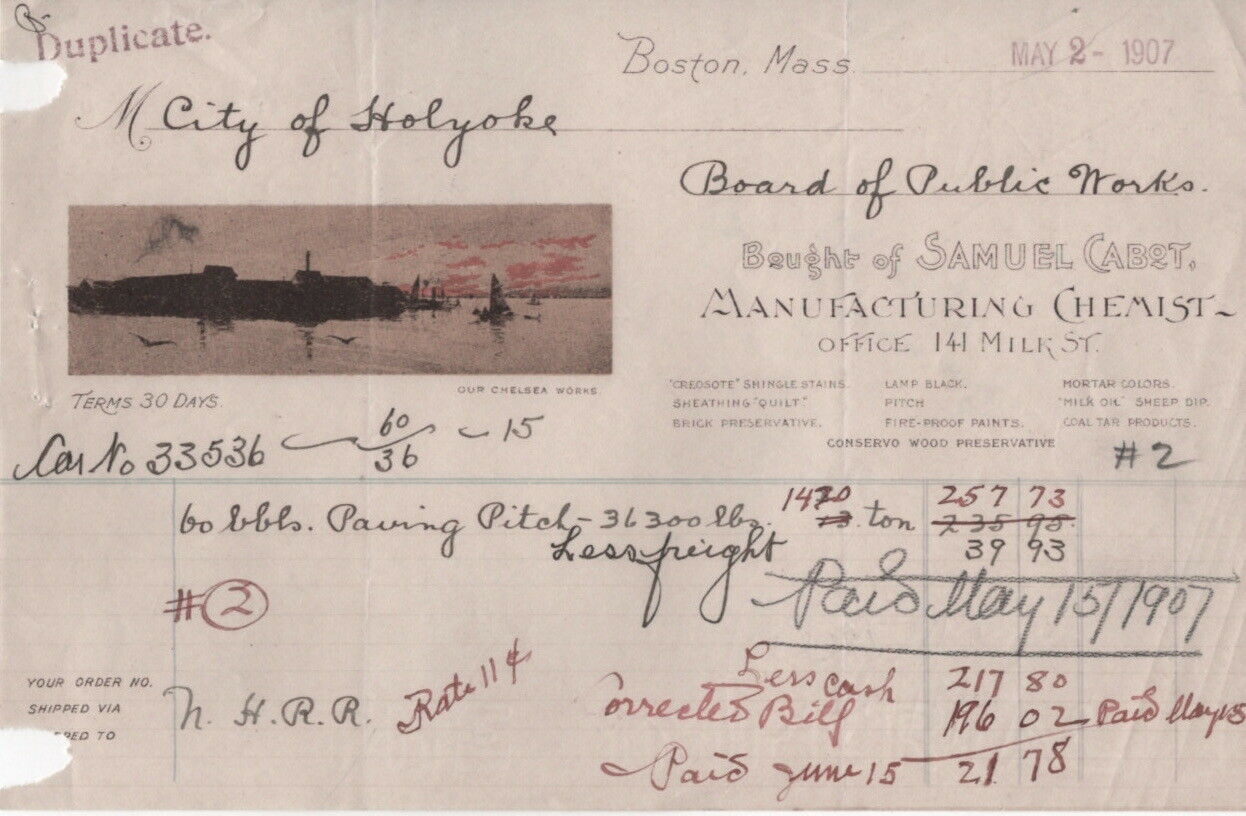 Duplicate.
Boston, Mass. MAY 2 - 1907
M City of Holyoke
Board of Public Works.
Bought of SAMUEL CABOT,
MANUFACTURING CHEMIST
OFFICE 141 MILK ST.
OUR CHELSEA WORKS.
TERMS 30 DAYS.
"CREOSOTE" SHINGLE STAINS. LAMP BLACK. MORTAR COLORS.
SHEATHING "QUILT." PITCH "MILK OIL" SHEEP DIP.
BRICK PRESERVATIVE. FIRE-PROOF PAINTS. COAL TAR PRODUCTS.
CONSERVO WOOD PRESERVATIVE
Car No 33536 60/36 - 15 #2
60 bbls. Paving Pitch - 36300 lbs. 1420 13. ton 257 73
235 95
Less freight 39 93
#2
Paid May 15/1907
Less cash 217 80
YOUR ORDER NO.
SHIPPED VIA N. H. R. R. Rate 11¢ Corrected Bill 196 02 Paid May 15
Paid June 15 21 78